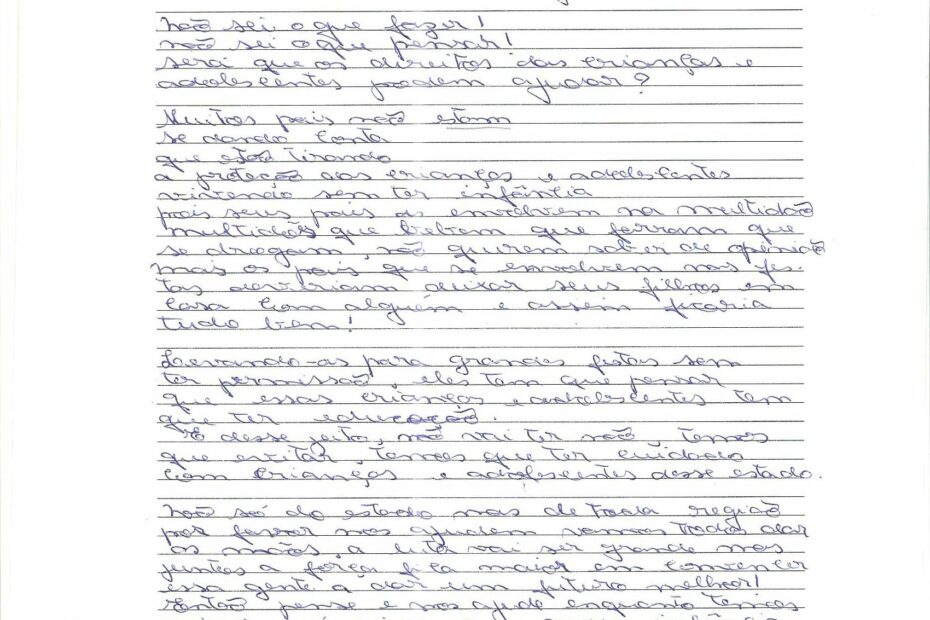 não sei o que fazer!
não sei o que pensar!
será que os direitos das crianças e
adolescentes podem ajudar?
Muitos pais não estam
se dando conta
que estão tirando
a proteção das crianças e adolescentes
vivendo sem ter infância
pois seus pais as envolvem na multidão
multidões que bebem que ferram que
se drogam, não querem saber de opinião
mais os pais que se envolvem nas fes-
tas deveriam deixar seus filhos em
casa com alguém e assim ficaria
tudo bem!
Levando-as para grandes festas sem
ter permissão, eles tem que pensar
que essas crianças e adolescentes tem
que ter educação.
E desse jeito, não vai ter não, temos
que evitar, temos que ter cuidado
com crianças e adolescentes desse estado.
não só do estado mas de toda região
por favor nos ajudem vamos todos dar
as mãos, a luta vai ser grande mas
juntos a força fica maior em convencer
essa gente a dar um futuro melhor!
Então pense e nos ajude enquanto temos